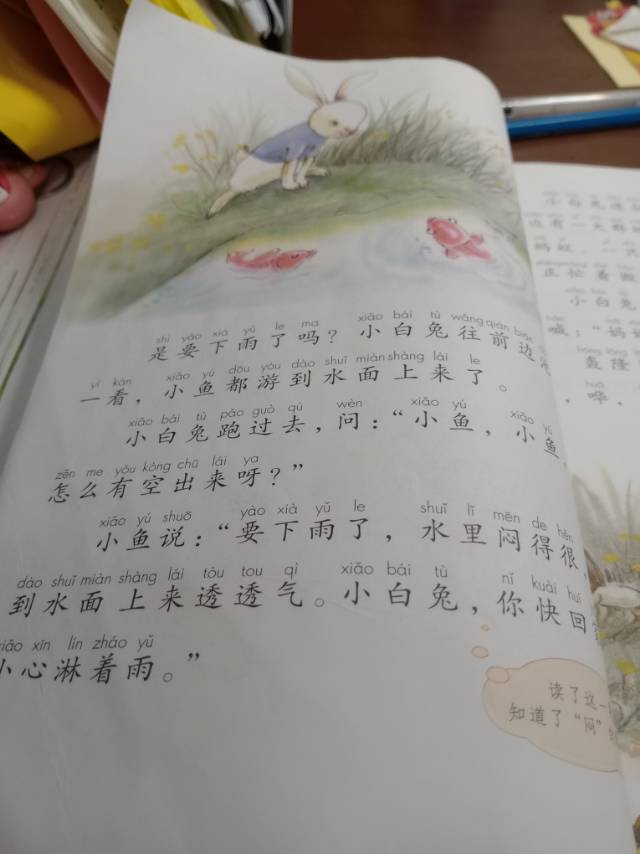 shì yào xià yǔ le ma xiǎo bái tù wǎng qián biān
是要下雨了吗？小白兔往前边
yí kàn xiǎo yú dōu yóu dào shuǐ miàn shàng lái le
一看，小鱼都游到水面上来了。
xiǎo bái tù pǎo guò qù wèn xiǎo yú xiǎo yú
小白兔跑过去，问：“小鱼，小鱼，
zěn me yǒu kòng chū lái ya
怎么有空出来呀？”
xiǎo yú shuō yào xià yǔ le shuǐ lǐ mēn de hěn
小鱼说：“要下雨了，水里闷得很，
dào shuǐ miàn shàng lái tòu tou qì xiǎo bái tù nǐ kuài huí
到水面上来透透气。小白兔，你快回
xiǎo xīn lín zháo yǔ
小心淋着雨。”
读了这一
知道了“闷”
小白兔
还有一大群
蚂蚁，一
正忙着搬
小白兔
喊：“妈妈
轰隆
，哗，